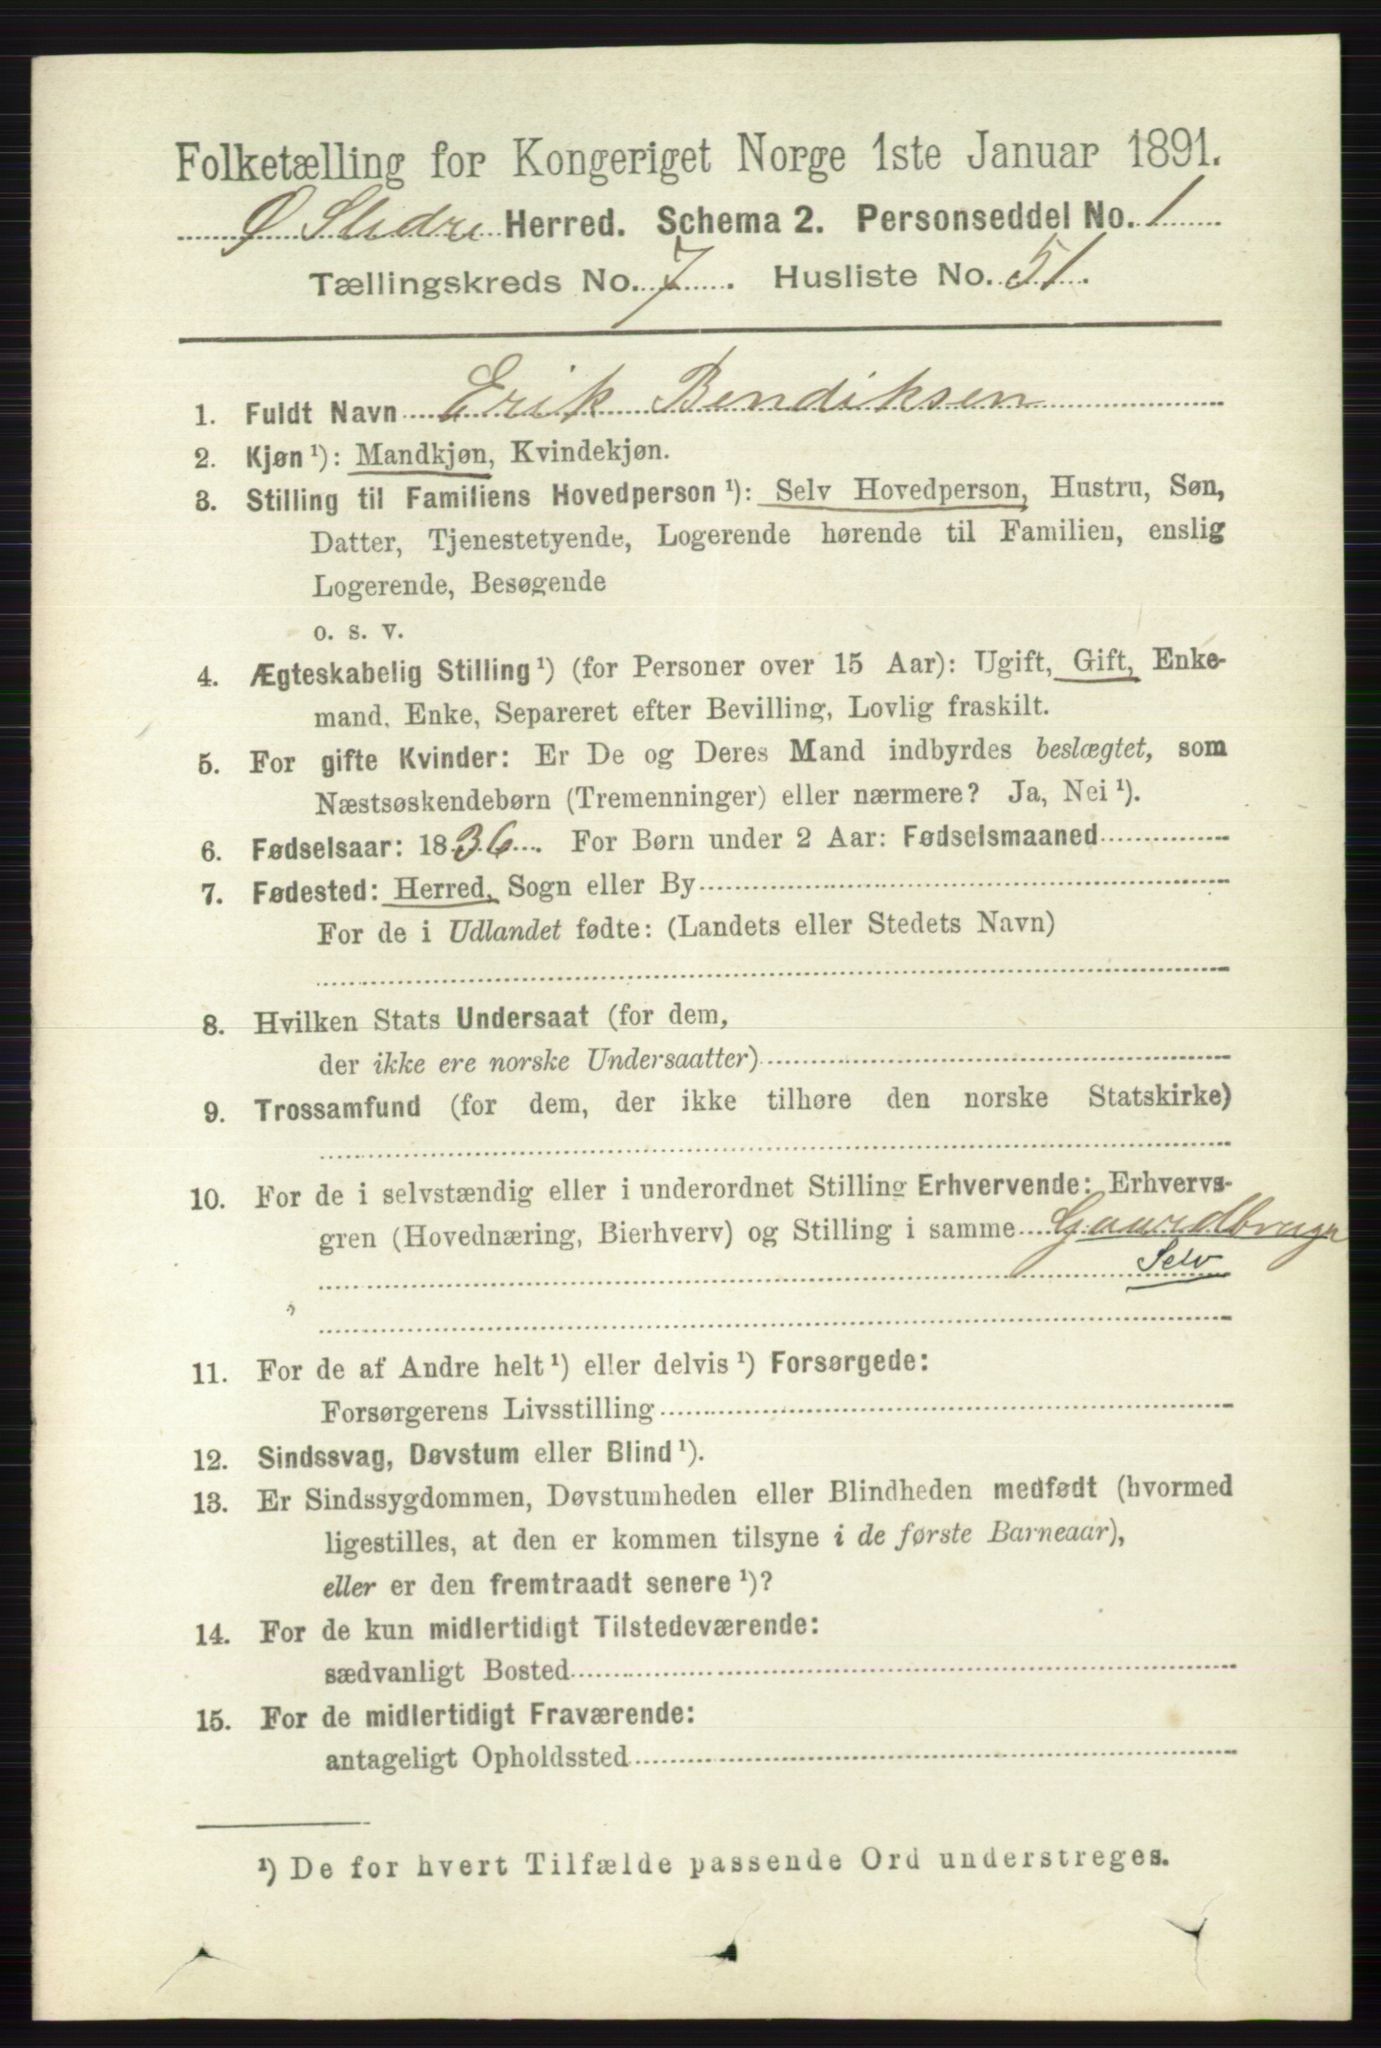 Folketælling for Kongeriget Norge 1ste Januar 1891.
Ø Slidre Herred. Schema 2. Personseddel No. 1
Tællingskreds No. 7. Husliste No. 51.
1. Fuldt Navn Erik Bendiksen
2. Kjøn ¹): Mandkjøn, Kvindekjøn.
3. Stilling til Familiens Hovedperson ¹): Selv Hovedperson, Hustru, Søn,
Datter, Tjenestetyende, Logerende hørende til Familien, enslig
Logerende, Besøgende
o. s. v.
4. Ægteskabelig Stilling ¹) (for Personer over 15 Aar): Ugift, Gift, Enke-
mand, Enke, Separeret efter Bevilling, Lovlig fraskilt.
5. For gifte Kvinder: Er De og Deres Mand indbyrdes beslægtet, som
Næstsøskendebørn (Tremenninger) eller nærmere? Ja, Nei ¹).
6. Fødselsaar: 1836. For Børn under 2 Aar: Fødselsmaaned
7. Fødested: Herred, Sogn eller By
For de i Udlandet fødte: (Landets eller Stedets Navn)
8. Hvilken Stats Undersaat (for dem,
der ikke ere norske Undersaatter)
9. Trossamfund (for dem, der ikke tilhøre den norske Statskirke)
10. For de i selvstændig eller i underordnet Stilling Erhvervende: Erhvervs-
gren (Hovednæring, Bierhverv) og Stilling i samme Gaardbruger
Selv
11. For de af Andre helt ¹) eller delvis ¹) Forsørgede:
Forsørgerens Livsstilling
12. Sindssvag, Døvstum eller Blind ¹).
13. Er Sindssygdommen, Døvstumheden eller Blindheden medfødt (hvormed
ligestilles, at den er kommen tilsyne i de første Barneaar),
eller er den fremtraadt senere ¹)?
14. For de kun midlertidigt Tilstedeværende:
sædvanligt Bosted
15. For de midlertidigt Fraværende:
antageligt Opholdssted
¹) De for hvert Tilfælde passende Ord understreges.